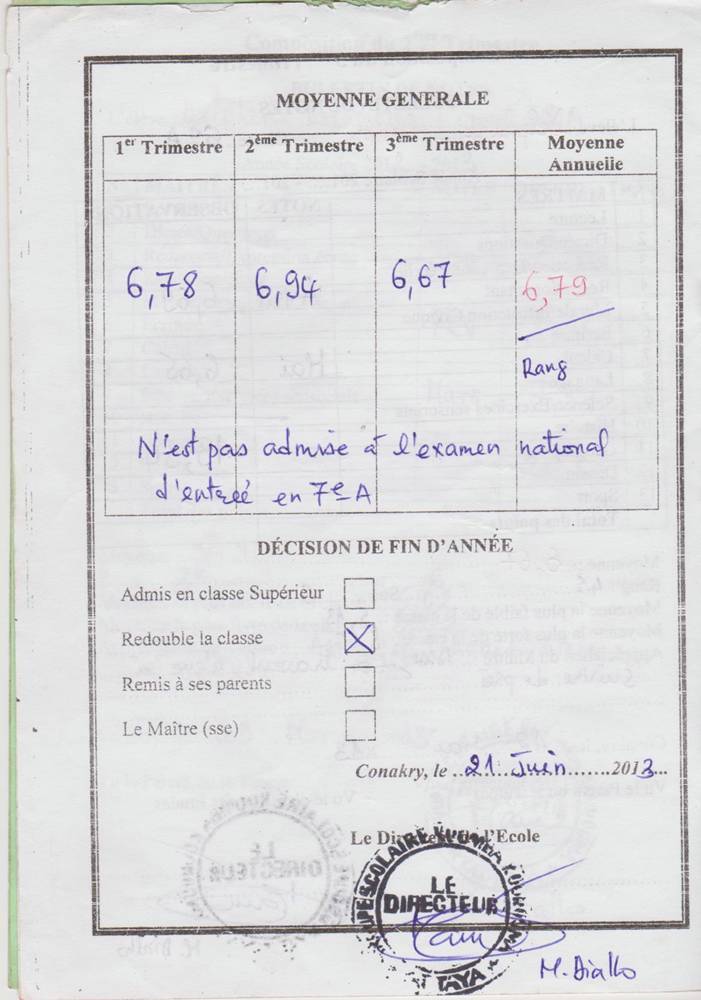 MOYENNE GENERALE
1er Trimestre 2ème Trimestre 3ème Trimestre Moyenne Annuelle
6,78 6,94 6,67 6,79
Rang
N'est pas admise à l'examen national
d'entreé en 7e A
DÉCISION DE FIN D'ANNÉE
Admis en classe Supérieur
Redouble la classe
Remis à ses parents
Le Maître (sse)
Conakry, le ..21 Juin.......2013...
Le Directeur de l'Ecole
LE
DIRECTEUR
TAYA
M. Diallo